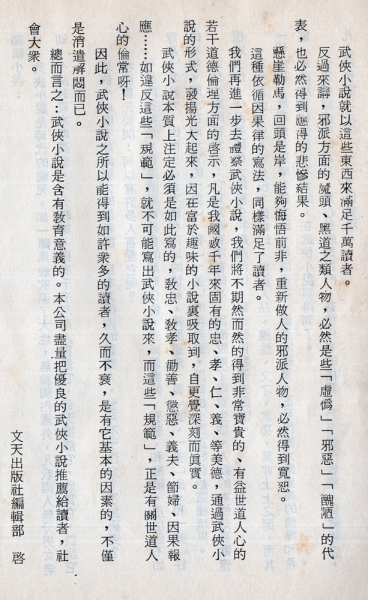 武俠小說就以這些東西來滿足千萬讀者。
反過來講，邪派方面的魔頭、黑道之類人物，必然是些「虛僞」「邪惡」「醜陋」的代
表，也必然得到應得的悲慘結果。
懸崖勒馬，回頭是岸，能夠悔悟前非，重新做人的邪派人物，必然得到寬恕。
這種依循因果律的寫法，同樣滿足了讀者。
我們再進一步去體察武俠小說，我們將不期然而然的得到非常寶貴的、有益世道人心的
若干道德倫理方面的啓示，凡是我國數千年來固有的忠、孝、仁、義、等美德，通過武俠小
說的形式，發揚光大起來，因在富於趣味的小說裏吸取到，自更覺深刻而眞實。
武俠小說本質上注定必須是如此寫的，敎忠、敎孝、勸善、懲惡、義夫、節婦、因果報
應……如違反這些「規範」，就不可能寫出武俠小說來，而這些「規範」，正是有關世道人
心的倫常呀！
因此，武俠小說之所以能得到如許衆多的讀者，久而不衰，是有它基本的因素的，不僅
是消遣解悶而已。
總而言之：武俠小說是含有敎育意義的。本公司盡量把優良的武俠小說推薦給讀者，社
會大衆。
文天出版社編輯部　啓